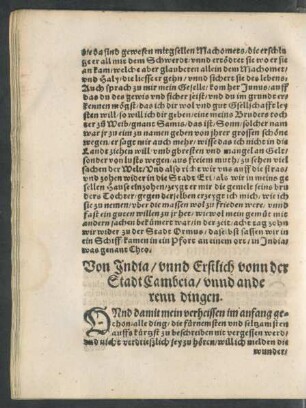 die da sind gewesen mitgsellen Machomets/ die erschlů
ge er all mit dem Schwerdt/ vnnd ertödtet sie wo er sie
an kam/ welche aber glaubeten allein dem Machomet/
vnnd Haly/ die liesse er gehn/ vnnd sichert sie des lebens.
Auch sprach zu mir mein Geselle/ kom her Junus/ auff
das du des gewis vnd sicher seist/ vnd du im grunde er
kennen mögst/ das ich dir wol vnd gut Gsellschafft ley
sten will/ so will ich dir geben/ eine meins Bruders toch
ter zů Weib/ gnant Samis/ das ist/ Sonn/ solcher nam
war jr zu eim zu namen geben von jhrer grossen schöne
wegen/ er sagt mir auch mehr/ wisse das ich nicht in die
Lande ziehen will/ vmb gbresten vnd mangel an Gelt/
sonder von lusts wegen/ aus freiem muth/ zu sehen viel
sachen der Welt/ Vnd also richt wir vns auff die straß/
vnd zohen wider in die Stadt Eri/ als wir in meins ge
sellen Hause einzohen/ zeygt er mir die gemelt seins bru
ders Tochter/ gegen derselben erzeygt ich mich/ wie ich
sie zu nemen/ vber die massen wol zu frieden were/ vnd
fast ein guten willen zu jr het/ wiewol mein gemüt mit
andern sachen bekümmert war/ in der zeit/ acht tag zohn
wir wider zu der Stadt Ormus/ daselbst sassen wir in
ein Schiff/ kamen in ein Pfort an einem ort/ in Jndia/
was genant Cheo.
Von India/ vnnd Erstlich vonn der
Stadt Cambeia/ vnnd ande
renn dingen.
VNnd damit mein verheissen im anfang ge
schon/ alle ding/ die fürnemsten vnd seltzamsten
auffs kürtzst zu beschreiben mit vergessen werd/
vnd nicht verdrießlich sey zu hören/ will ich melden die
wunder/